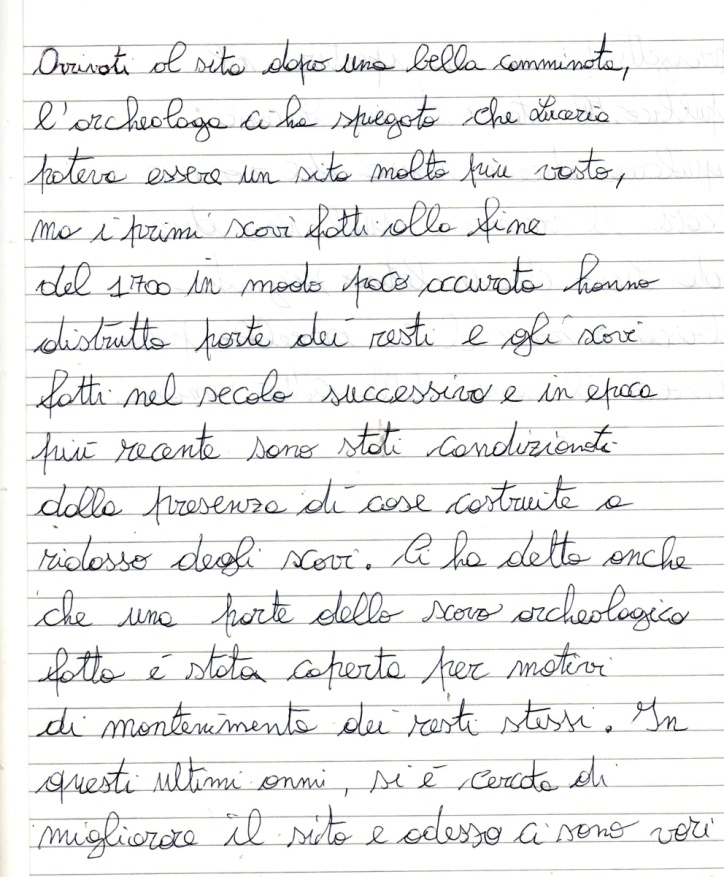 Arrivati al sito dopo una bella camminata,
l'archeologa ci ha spiegato che Luceria
poteva essere un sito molto più vasto,
ma i primi scavi fatti alla fine
del 1700 in modo poco accurato hanno
distrutto parte dei resti e gli scavi
fatti nel secolo successivo e in epoca
più recente sono stati condizionati
dalla presenza di case costruite a
ridosso degli scavi. Ci ha detto anche
che una parte dello scavo archeologico
fatto è stata coperta per motivi
di mantenimento dei resti stessi. In
questi ultimi anni, si è cercato di
migliorare il sito e adesso ci sono vari